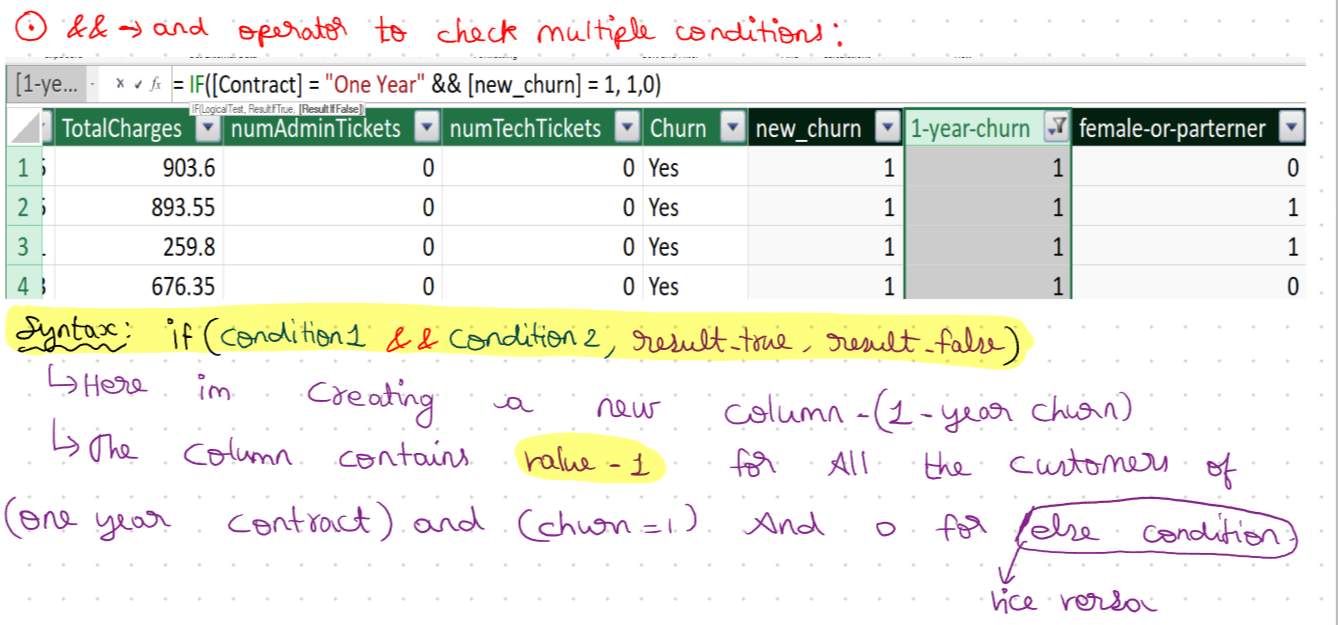 ⊙ && → and operator to check multiple conditions:
[1-ye... = IF([Contract] = "One Year" && [new_churn] = 1, 1,0)
IF(LogicalTest, ResultIfTrue, [ResultIfFalse])
TotalCharges numAdminTickets numTechTickets Churn new_churn 1-year-churn female-or-parterner
1 903.6 0 0 Yes 1 1 0
2 893.55 0 0 Yes 1 1 1
3 259.8 0 0 Yes 1 1 1
4 676.35 0 0 Yes 1 1 0
Syntax: if (condition1 && condition 2, result_true, result_false)
↳ Here im creating a new column - (1 - year churn)
↳ The column contains value - 1 for All the customers of
(one year contract) and (churn = 1) And 0 for (else condition)
vice versa